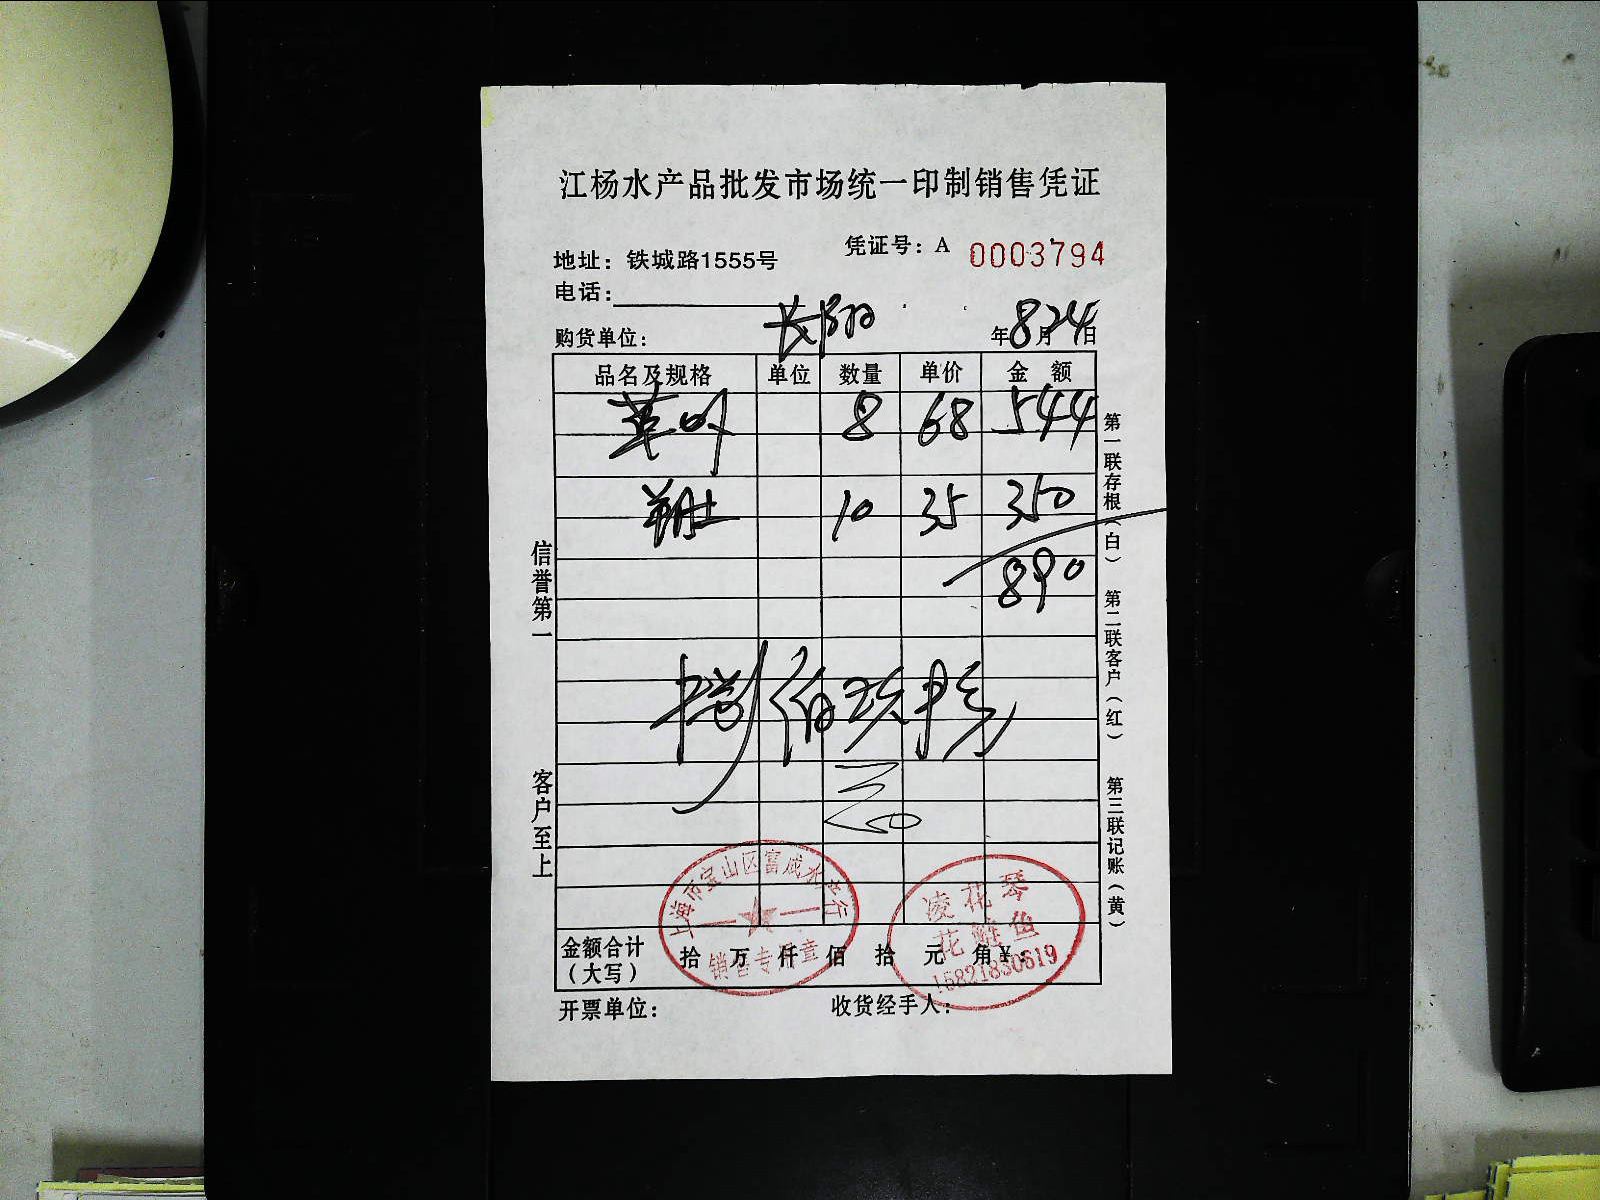 江杨水产品批发市场统一印制销售凭证
凭证号：A 0003794
地址：铁城路1555号
电话：
购货单位： 年8月24日
品名及规格 单位 数量 单价 金 额
8 68 544
10 35 350
890
捌佰玖拾元
金额合计（大写） 拾 万 仟 佰 拾 元 角 ¥：
开票单位： 收货经手人：
信誉第一
客户至上
第一联存根（白） 第二联客户（红） 第三联记账（黄）
上海市宝山区富成水产行
销售专用章
凌花琴
花鲢鱼
15821830619